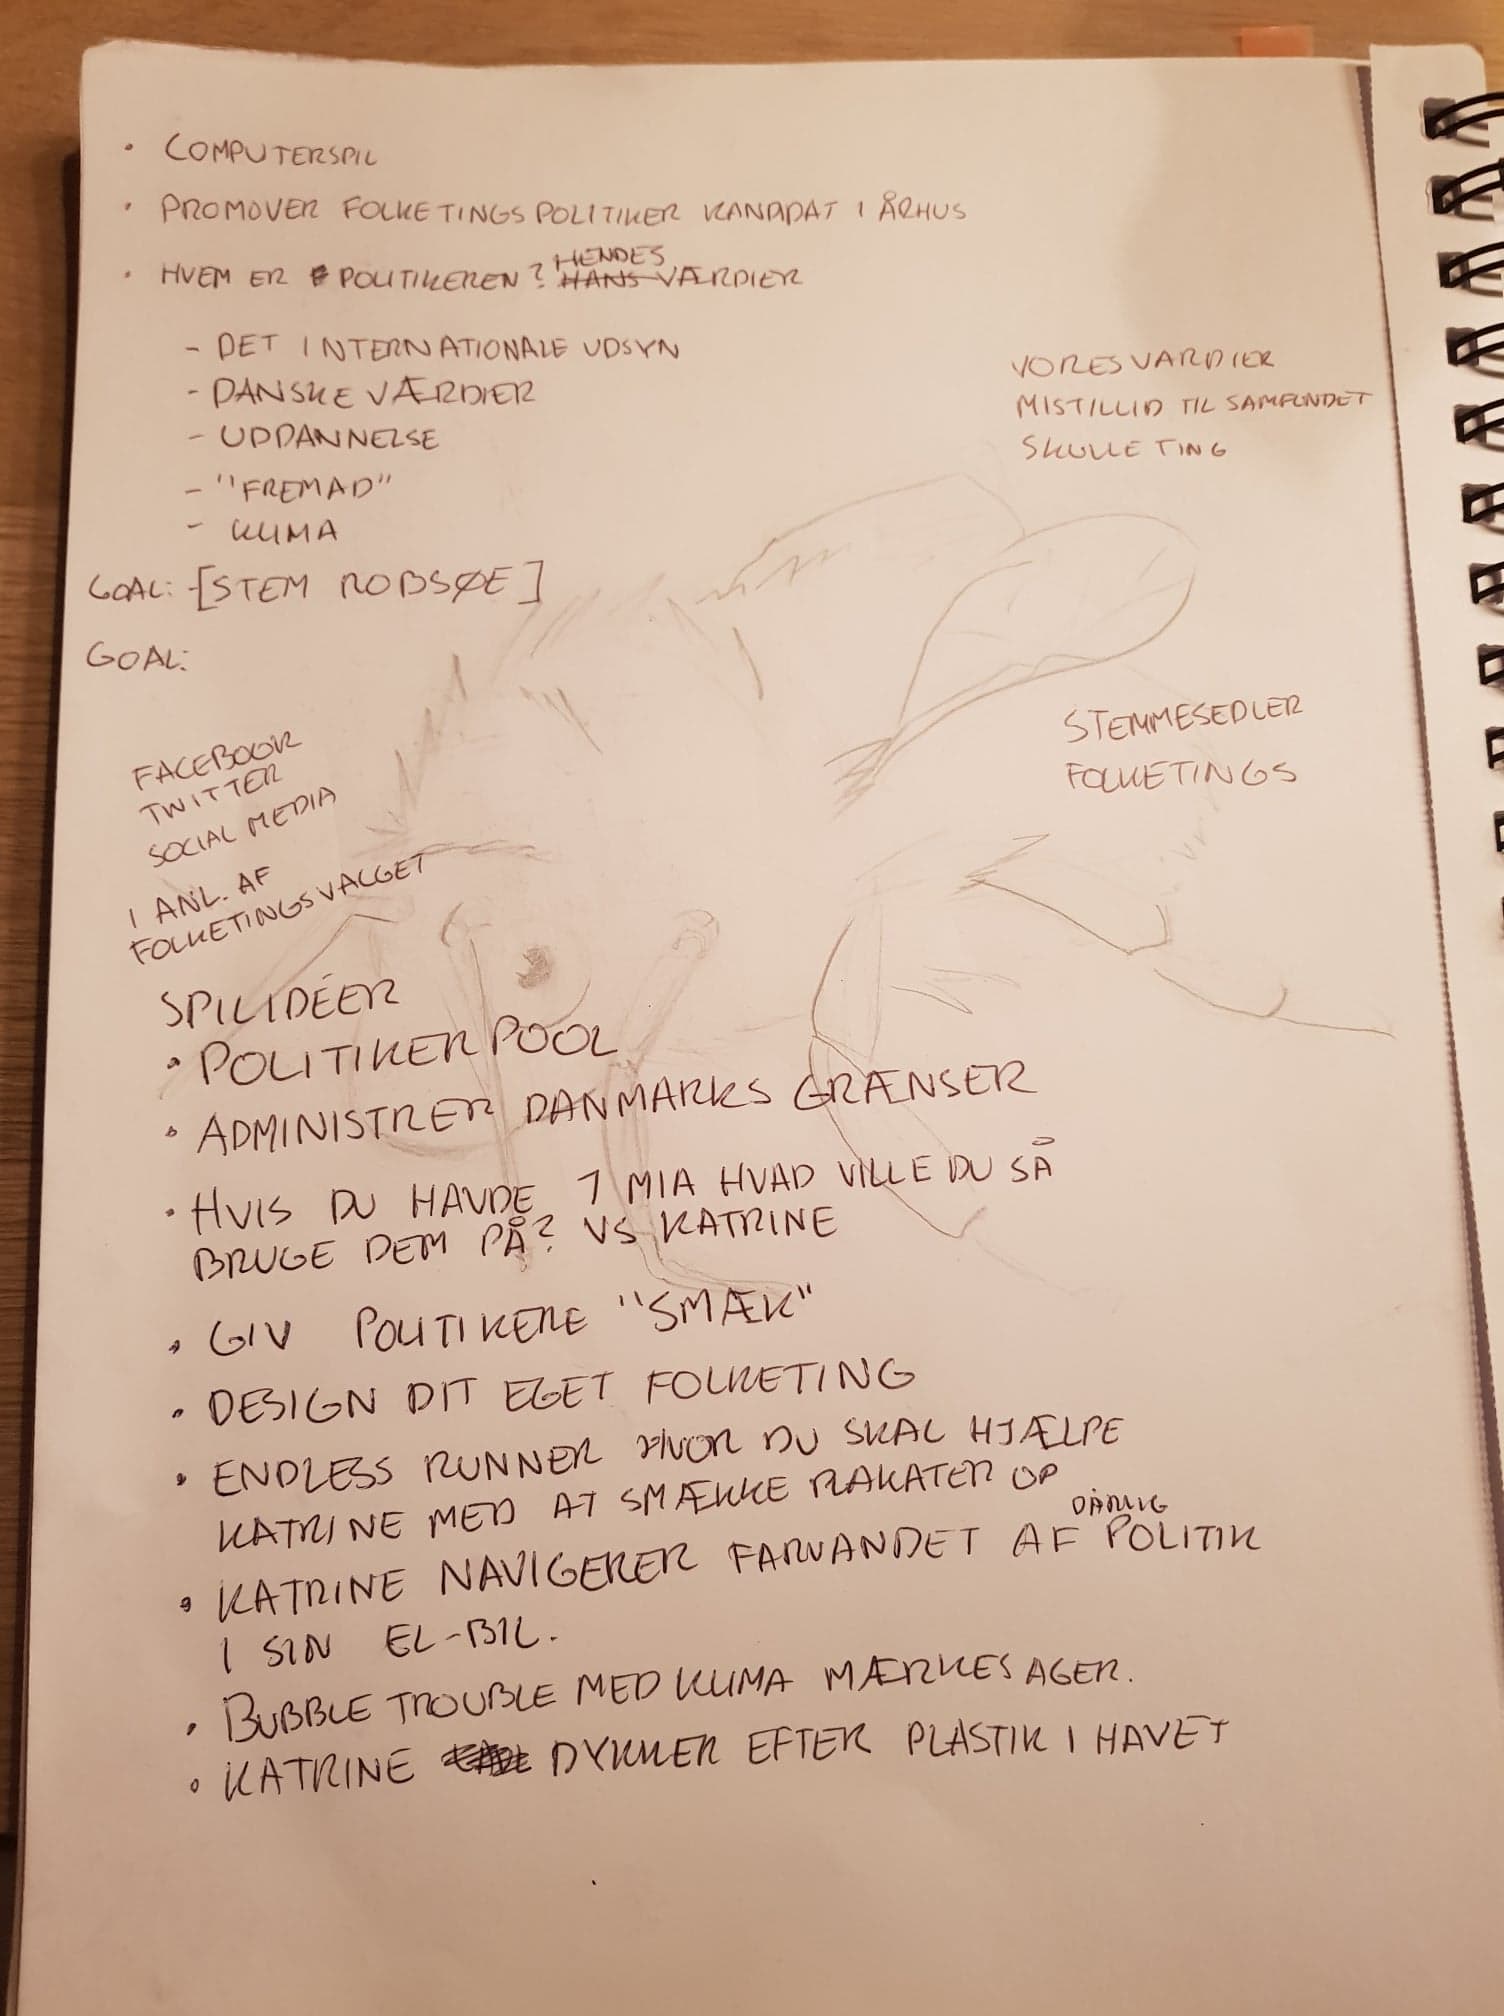 • COMPUTERSPIL
• PROMOVER FOLKETINGSPOLITIKER KANDIDAT I ÅRHUS
• HVEM ER POLITIKEREN? HENDES
HANS VÆRDIER
- DET INTERNATIONALE UDSYN
- DANSKE VÆRDIER
- UDDANNELSE
- "FREMAD"
- KLIMA
VORES VÆRDIER
MISTILLID TIL SAMFUNDET
SKULLE TING
GOAL: [STEM ROBSØE]
GOAL:
STEMMESEDLER
FOLKETINGS
FACEBOOK
TWITTER
SOCIAL MEDIA
I ANL. AF
FOLKETINGSVALGET
SPILIDÉER
• POLITIKER POOL
• ADMINISTRER DANMARKS GRÆNSER
• HVIS DU HAVDE 1 MIA HVAD VILLE DU SÅ
BRUGE DEM PÅ? VS KATRINE
• GIV POLITIKERE "SMÆK"
• DESIGN DIT EGET FOLKETING
• ENDLESS RUNNER HVOR DU SKAL HJÆLPE
KATRINE MED AT SMÆKKE PLAKATER OP
DÅRLIG
• KATRINE NAVIGERER FARVANDET AF POLITIK
I SIN EL-BIL.
• BUBBLE TROUBLE MED KLIMA MÆRKESAGER.
• KATRINE DYKKER EFTER PLASTIK I HAVET